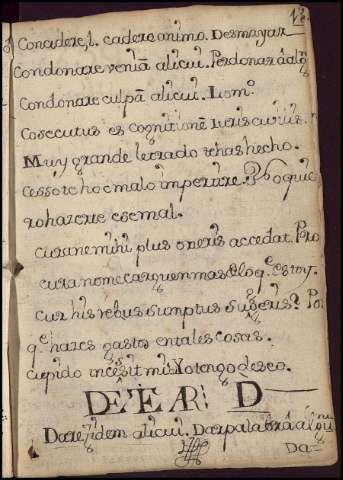 Concidere, l. cadere animo. Desmayar
Condonare veniã alicui. Perdonar â alg
Condonare culpã alicui. Ismo.
Cosecutus es cognitionẽ iuris civilis.
Muy grande letrado te has hecho.
Cesso te hoc malo impertire. No quie
ro hazerte ese mal.
cura ne mihi plus oneris accedat. Pro
cura no me carguen mas de lo q̃ estoy.
cur his rebus sumptus suggeris? Po
q̃ hazes gastos en tales cosas.
cupido incessit mihi. Yo tengo deseo.
DE EAR D
Dare fidem alicui. Dar palabra â algu
Da-